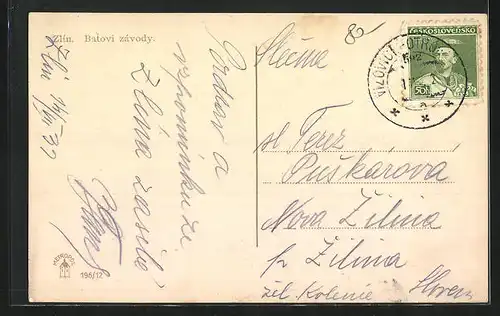 Zlín. Baťovi závody.
Zlín 14/VIII 37
Pozdrav a
vzpomínku ze
Zlína zasílá
Slečna
sl. Terez
Puškarova
Nova Žilina
p. Žilina
žel. Kolonie
Sloven
ČESKOSLOVENSKO
50h
VIZOVICE
METROPOL
196/12